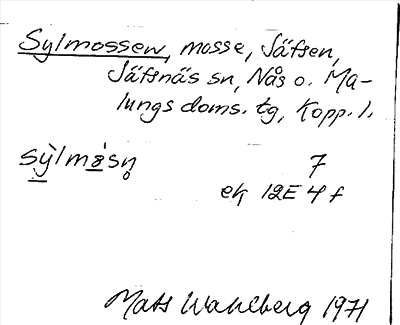 Sylmossen, mosse, Säfsen,
Säfsnäs sn, Nås o. Ma-
lungs doms. tg, Kopp. l.
sỳ̱lmɞ̱́sn̥ 7
ek 12E 4 f
Mats Wahlberg 1971